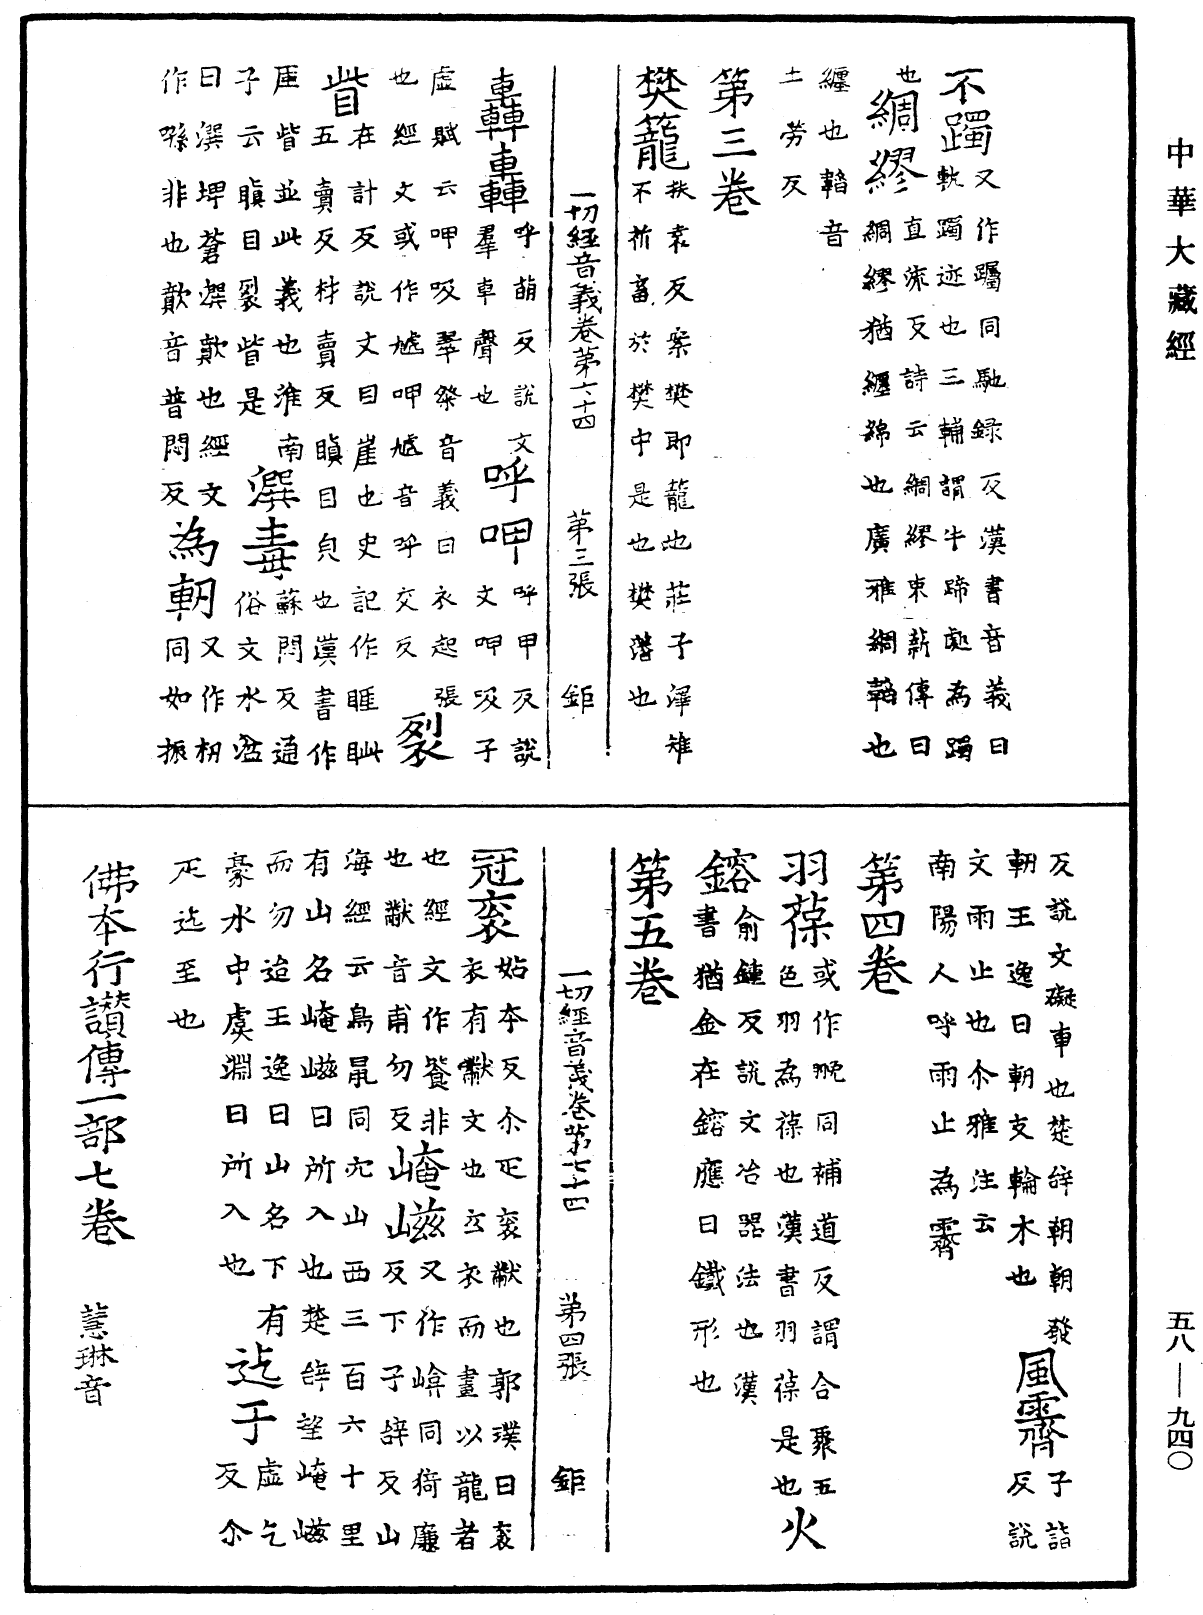 中華大藏經
不躅又作躅同馳録反漢書音義曰
軌躅迹也三輔謂牛蹄處為躅
也綢繆直流反詩云綢繆束薪傳曰
綢繆猶纏綿也廣雅綢韜也
纏也韜音
土勞反
第三卷
樊籠扶袁反案樊即籠也莊子澤雉
不祈畜於樊中是也樊藩也
一切經音義卷第七十四 第三張 鉅
轟轟呼萌反說文
羣車聲也呼呷呼甲反說
文呷吸子
虛賦云呷吸翠粲音義曰衣起張
也經文或作呷音呼交反裂
眥在計反說文目崖也史記作睚眦
五賣反材賣反瞋目皃也漢書作
厓眥並此義也淮南
子云瞋目裂眥是潠毒蘇悶反通
俗文水湓
曰潠埤蒼潠歕也經文
作非也歕音普悶反為軔又作同如振
反說文礙車也楚辞朝朝發
軔王逸曰軔支輪木也風霽子詣
反說
文雨止也尒雅注云
南陽人呼雨止為霽
第四卷
羽葆或作同補道反謂合聚五
色羽為葆也漢書羽葆是也火
鎔俞鍾反說文冶器法也漢
書猶金在鎔應曰鐵形也
第五卷
一切經音義卷第七十四 第四張 鉅
冠衮姑本反尒疋衮黻也郭璞曰衮
衣有黻文也玄衣而畫以龍者
也經文作非
也黻音甫勿反崦嵫又作同猗廉
反下子辞反山
海經云鳥鼠同穴山西三百六十里
有山名崦嵫日所入也楚辞望崦嵫
而勿迫王逸曰山名下有
豪水中虞淵日所入也迄于虛乞
反尒
疋迄至也
佛本行讃傳一部七卷 慧琳音
五八—九四〇